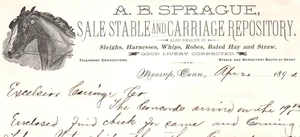 A. B. SPRAGUE,
SALE STABLE AND CARRIAGE REPOSITORY.
ALSO DEALER IN
Sleighs, Harnesses, Whips, Robes, Baled Hay and Straw.
GOOD LIVERY CONNECTED.
TELEPHONE CONNECTIONS
STABLE AND REPOSITORY SOUTH OF DEPOT.
Moosup, Conn., 189
Excelsior Carriage Co
The Concords arrived on the 19th
Enclosed find check for same and